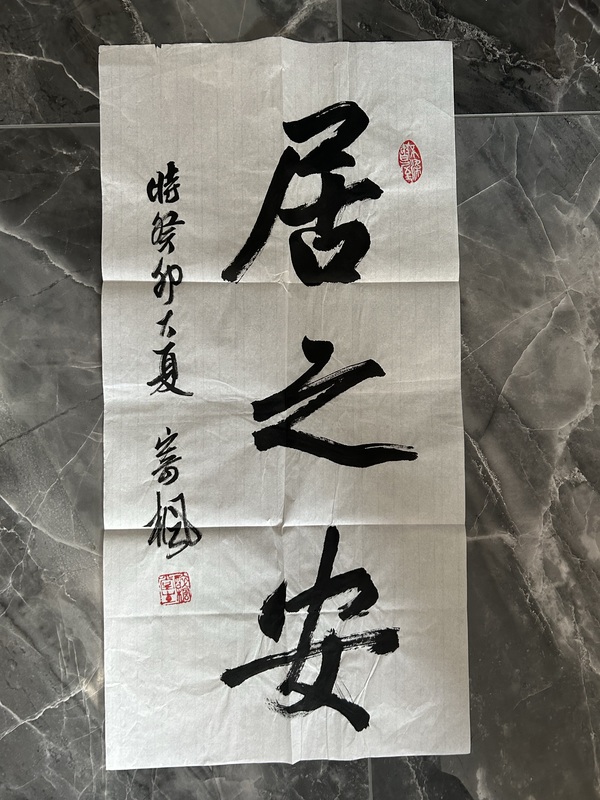 居之安
時癸卯大夏
寄楓